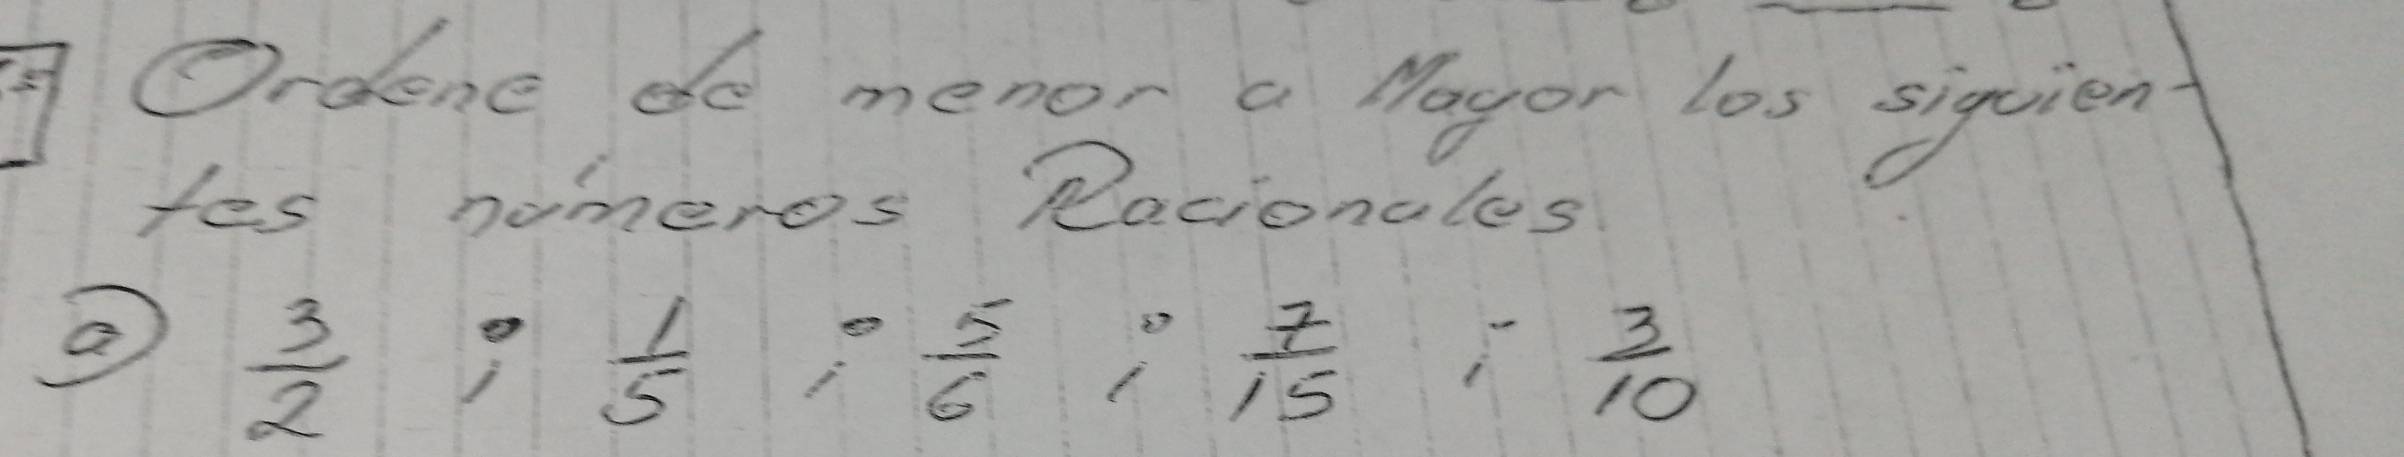 Ordene de menor a Mayor los siguien-
tes números Racionales
a) 3/2 ; 1/5 ; 5/6 ; 7/15 ; 3/10